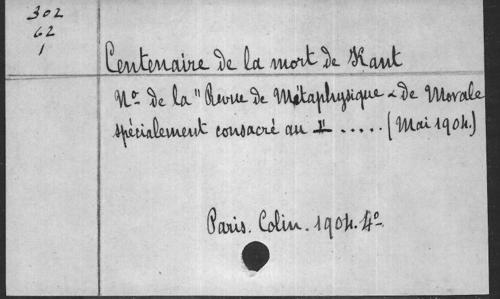 302
62
1
Centenaire de la mort de Kant
No de la "Revue de Métaphysique & de Morale
spécialement consacré au 1r ..... (Mai 1904.)
Paris. Colin. 1904. 4o.